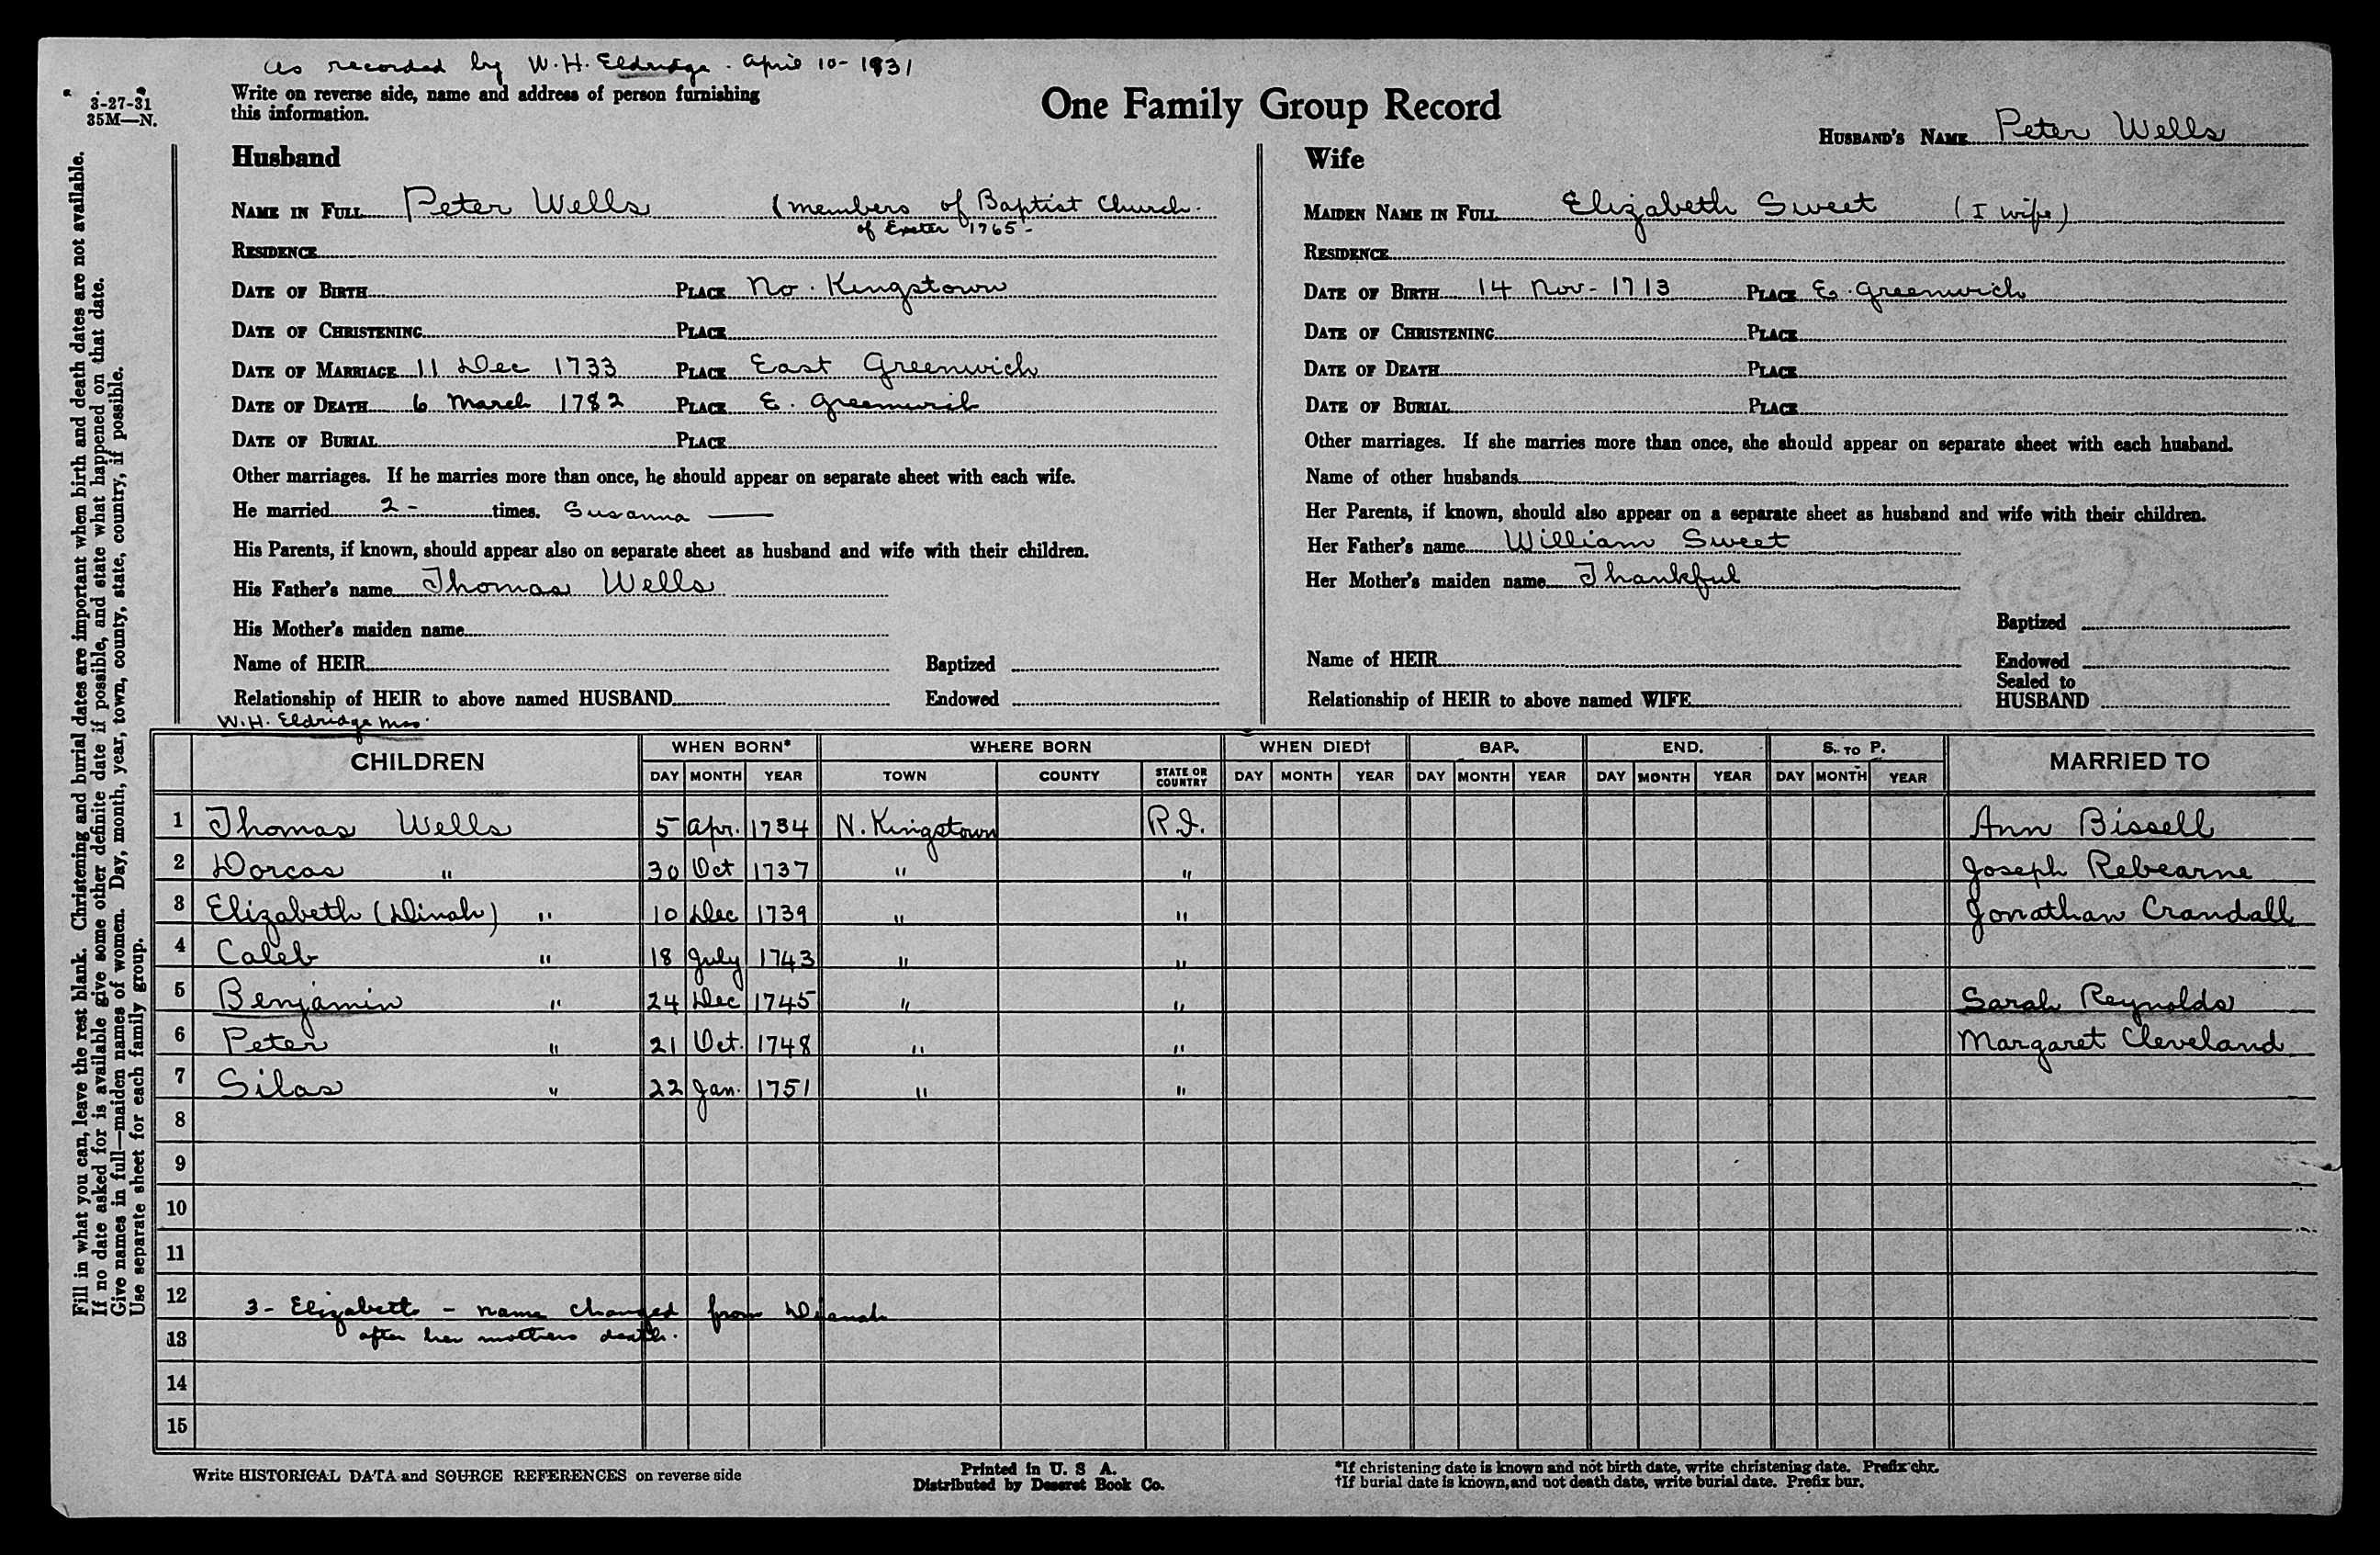 as recorded by W.H. Eldredge - April 10 - 1931
3-27-31
35M—N.
Write on reverse side, name and address of person furnishing
this information.
One Family Group Record
HUSBAND'S NAME Peter Wells
Fill in what you can, leave the rest blank. Christening and burial dates are important when birth and death dates are not available.
If no date asked for is available give some other definite date if possible, and state what happened on that date.
Give names in full—maiden names of women. Day, month, year, town, county, state, country, if possible.
Use separate sheet for each family group.
Husband
NAME IN FULL Peter Wells (members of Baptist Church.
of Exeter 1765 -
RESIDENCE
DATE OF BIRTH PLACE No. Kingstown
DATE OF CHRISTENING PLACE
DATE OF MARRIAGE 11 Dec 1733 PLACE East Greenwich
DATE OF DEATH 6 March 1782 PLACE E. Greenwich
DATE OF BURIAL PLACE
Other marriages. If he marries more than once, he should appear on separate sheet with each wife.
He married 2 - times. Susanna —
His Parents, if known, should appear also on separate sheet as husband and wife with their children.
His Father's name Thomas Wells
His Mother's maiden name
Name of HEIR Baptized
Relationship of HEIR to above named HUSBAND Endowed
Wife
MAIDEN NAME IN FULL Elizabeth Sweet (I wife)
RESIDENCE
DATE OF BIRTH 14 Nov - 1713 PLACE E. Greenwich
DATE OF CHRISTENING PLACE
DATE OF DEATH PLACE
DATE OF BURIAL PLACE
Other marriages. If she marries more than once, she should appear on separate sheet with each husband.
Name of other husbands
Her Parents, if known, should also appear on a separate sheet as husband and wife with their children.
Her Father's name William Sweet
Her Mother's maiden name Thankful
Baptized
Name of HEIR Endowed
Sealed to
Relationship of HEIR to above named WIFE HUSBAND
W.H. Eldridge Mss.
CHILDREN WHEN BORN* WHERE BORN WHEN DIED† BAP. END. S. TO P. MARRIED TO
DAY MONTH YEAR TOWN COUNTY STATE OR COUNTRY DAY MONTH YEAR DAY MONTH YEAR DAY MONTH YEAR DAY MONTH YEAR
1 Thomas Wells 5 Apr. 1734 N. Kingstown R.I. Ann Bissell
2 Dorcas " 30 Oct 1737 " " Joseph Rebearne
3 Elizabeth (Dinah) " 10 Dec 1739 " " Jonathan Crandall
4 Caleb " 18 July 1743 " "
5 Benjamin " 24 Dec 1745 " " Sarah Reynolds
6 Peter " 21 Oct. 1748 " " Margaret Cleveland
7 Silas " 22 Jan. 1751 " "
8
9
10
11
12 3 - Elizabeth - name changed from Dianah
13 after her mothers death.
14
15
Write HISTORICAL DATA and SOURCE REFERENCES on reverse side
Printed in U. S A.
Distributed by Deseret Book Co.
*If christening date is known and not birth date, write christening date. Prefix chr.
†If burial date is known, and not death date, write burial date. Prefix bur.